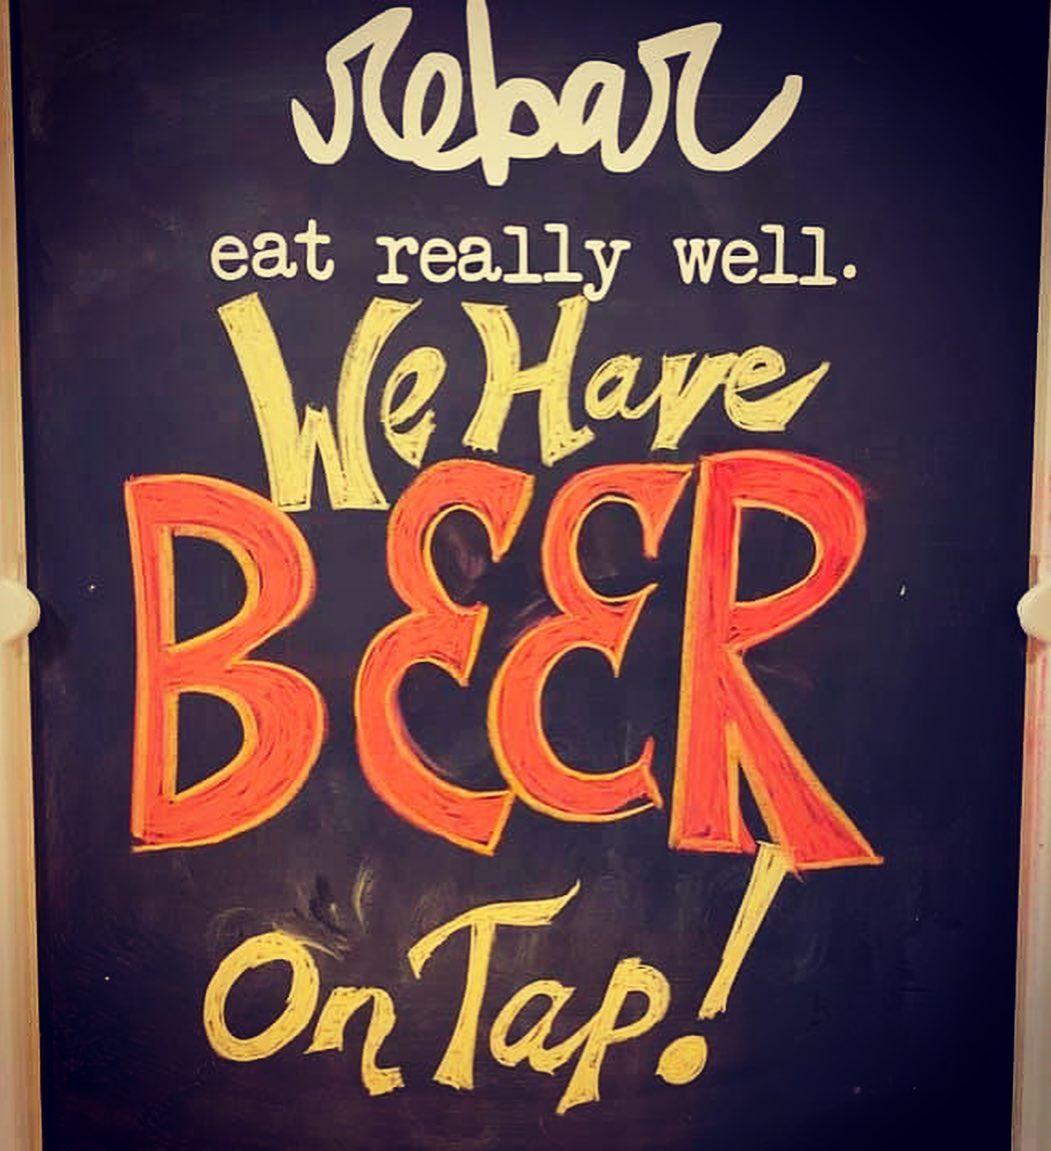 rebar
eat really well.
We Have
BEER
On Tap!